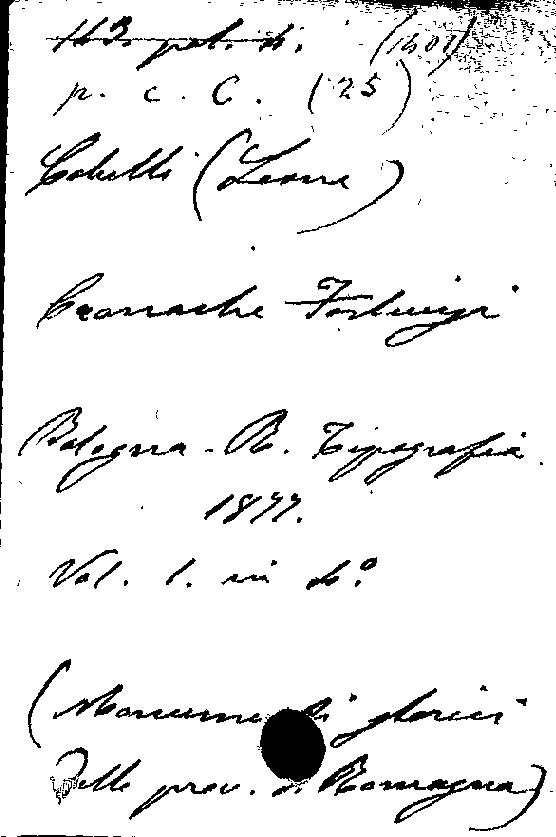 (1401)
p. c. C. (25)
Cobelli (Leone)
Cronache Forlivesi
Bologna - R. Tipografia
1877.
Vol. 1. in 4º
(Monumenti storici
delle prov. di Romagna)